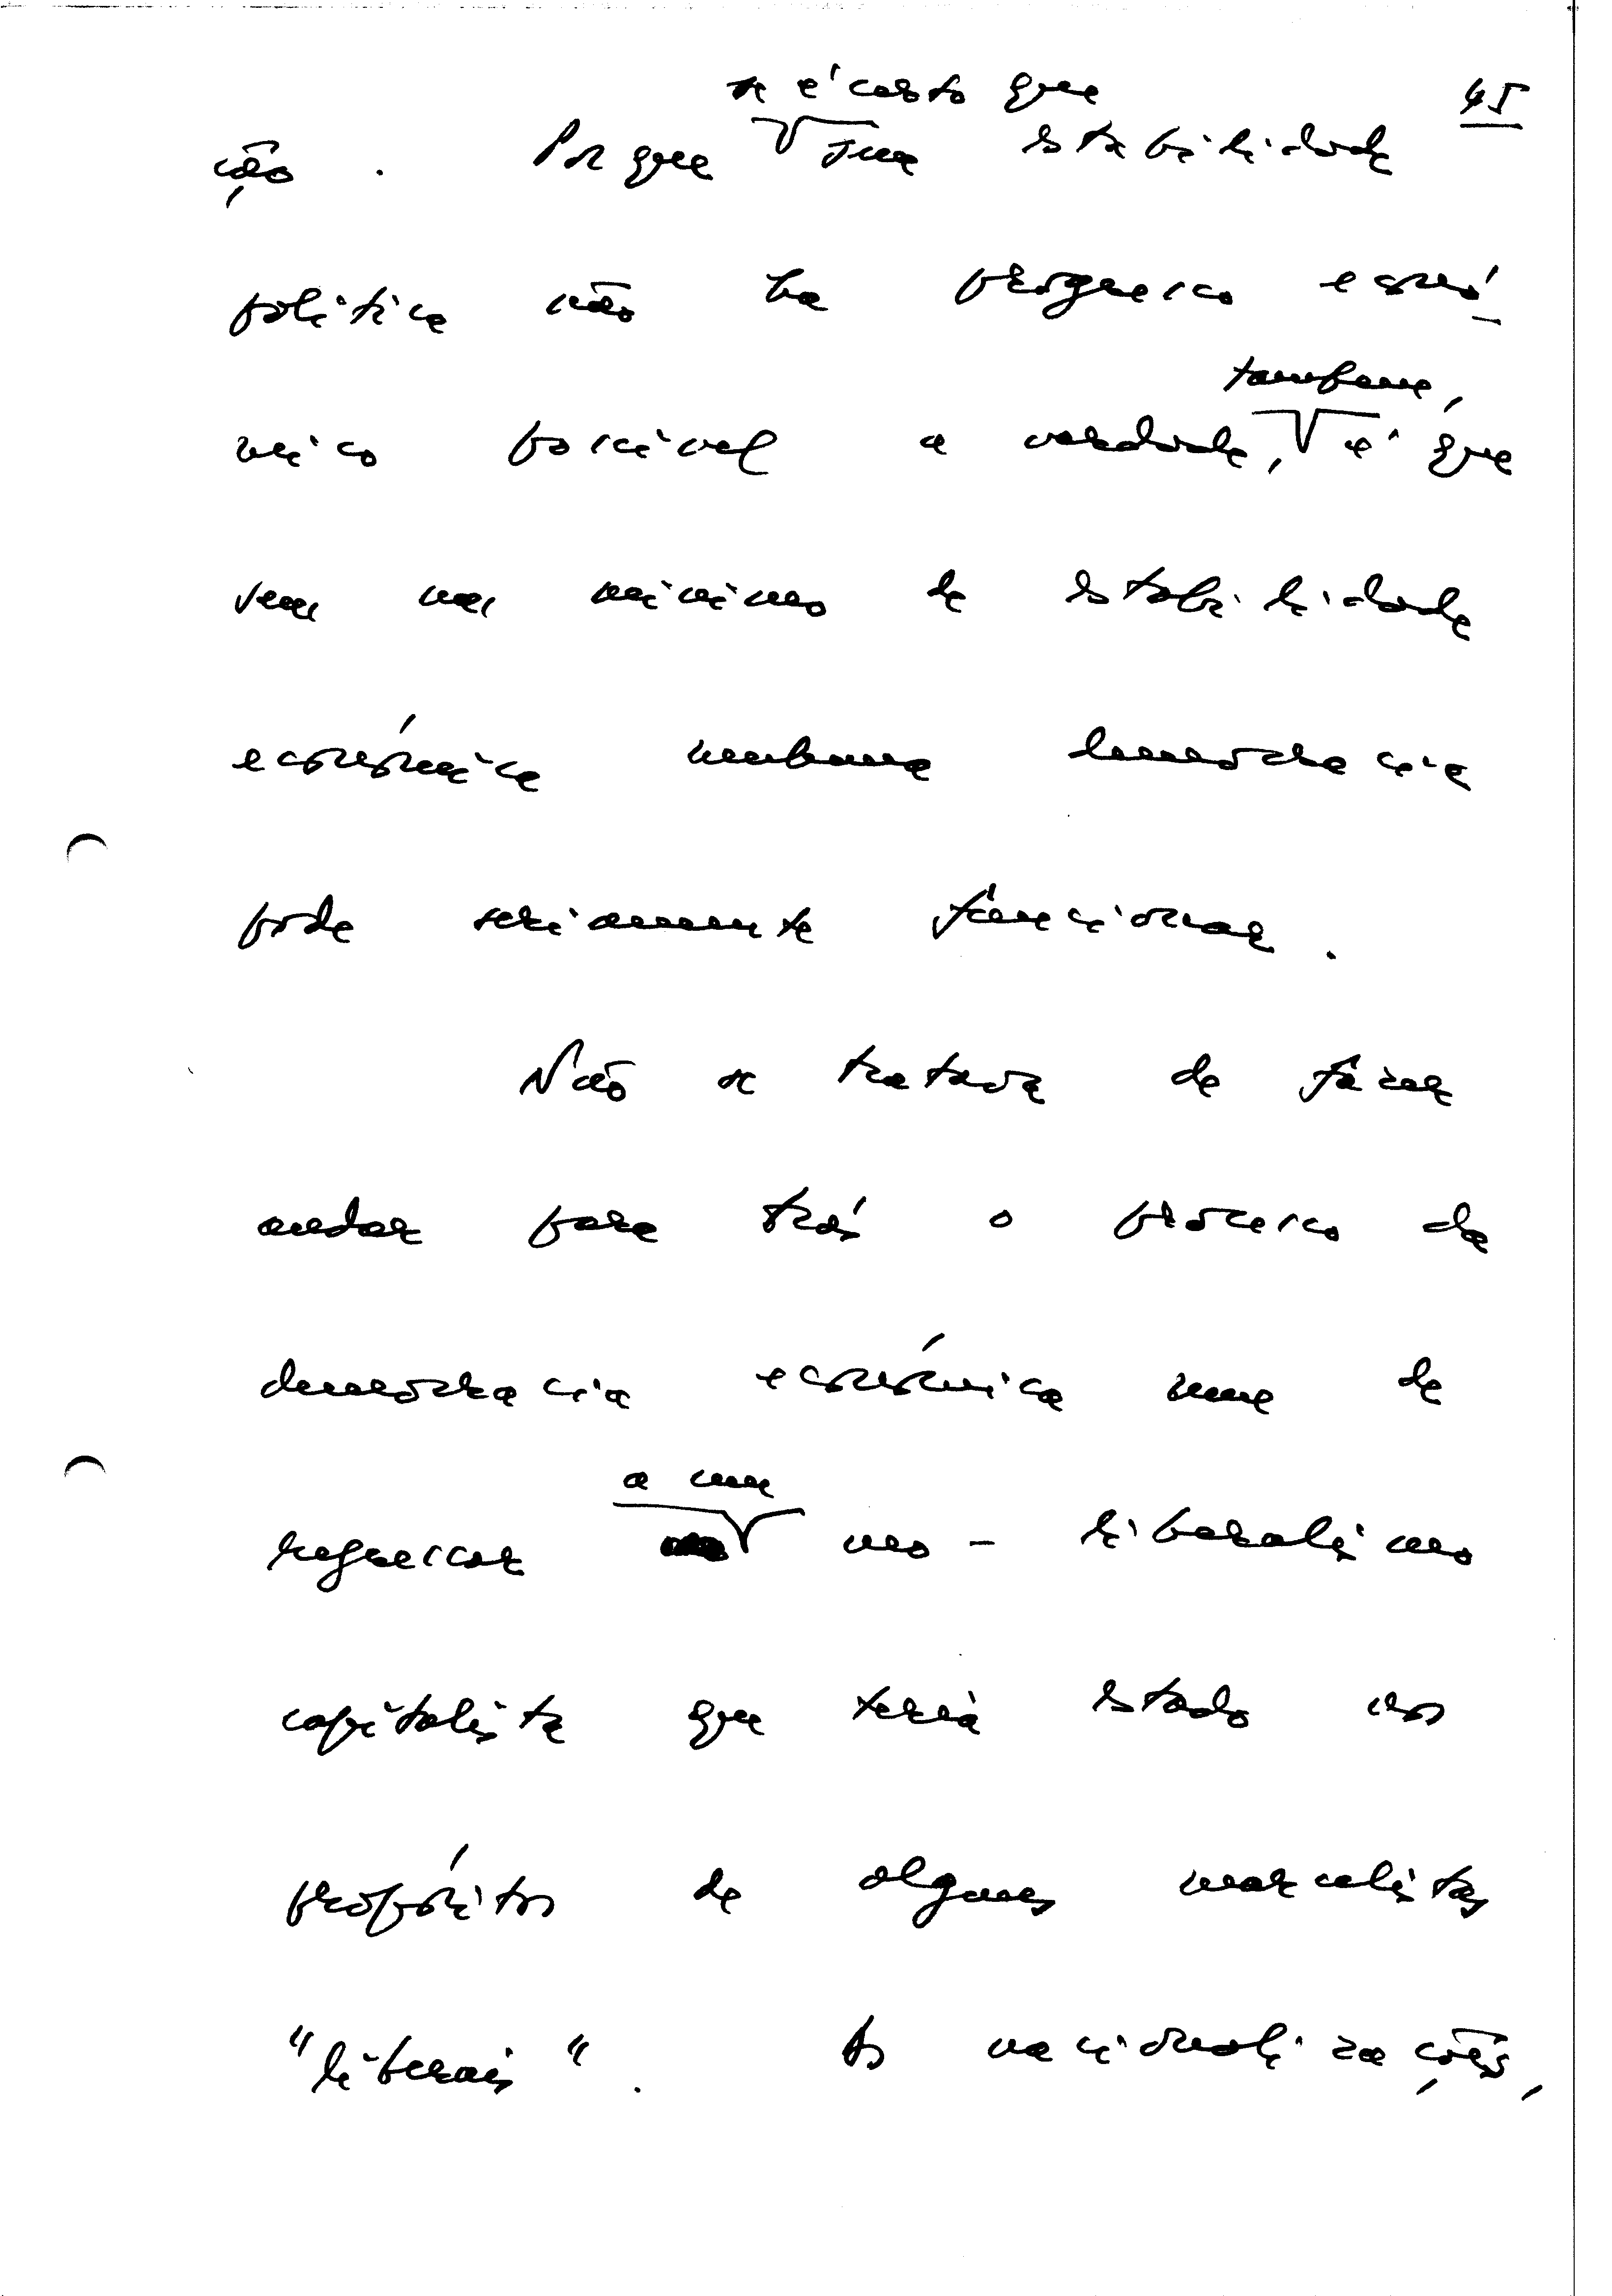 45
se é certo que
ção. Porque sem estabilidade
politica não ha progresso econó-
tambem,
mico possivel a verdade, é que
sem um minimo de estabilidade
económica nenhuma democracia
pode seriamente funcionar.
Não se tratava de fazer
andar para trás o processo da
democracia económica nem de
regressar
a um
neo-liberalismo
capitalista que teria estado nos
propósitos de alguns marcelistas
"liberais". As nacionalizações,